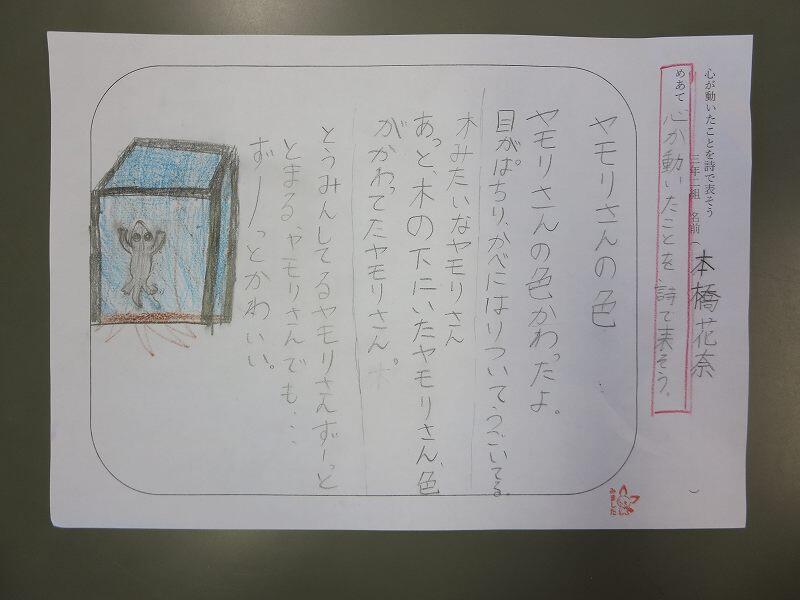 心が動いたことを詩で表そう
三年二組 名前(本橋花奈)
めあて 心が動いたことを詩で表そう。
ヤモリさんの色
ヤモリさんの色かわったよ。
目がぱちり、かべにはりついてうごいてる。
木みたいなヤモリさん
あっと、木の下にいたヤモリさん、色
がかわってたヤモリさん。
とうみんしてるヤモリさんずーっと
とまる、ヤモリさんでも、…
ずーっとかわいい。
みました